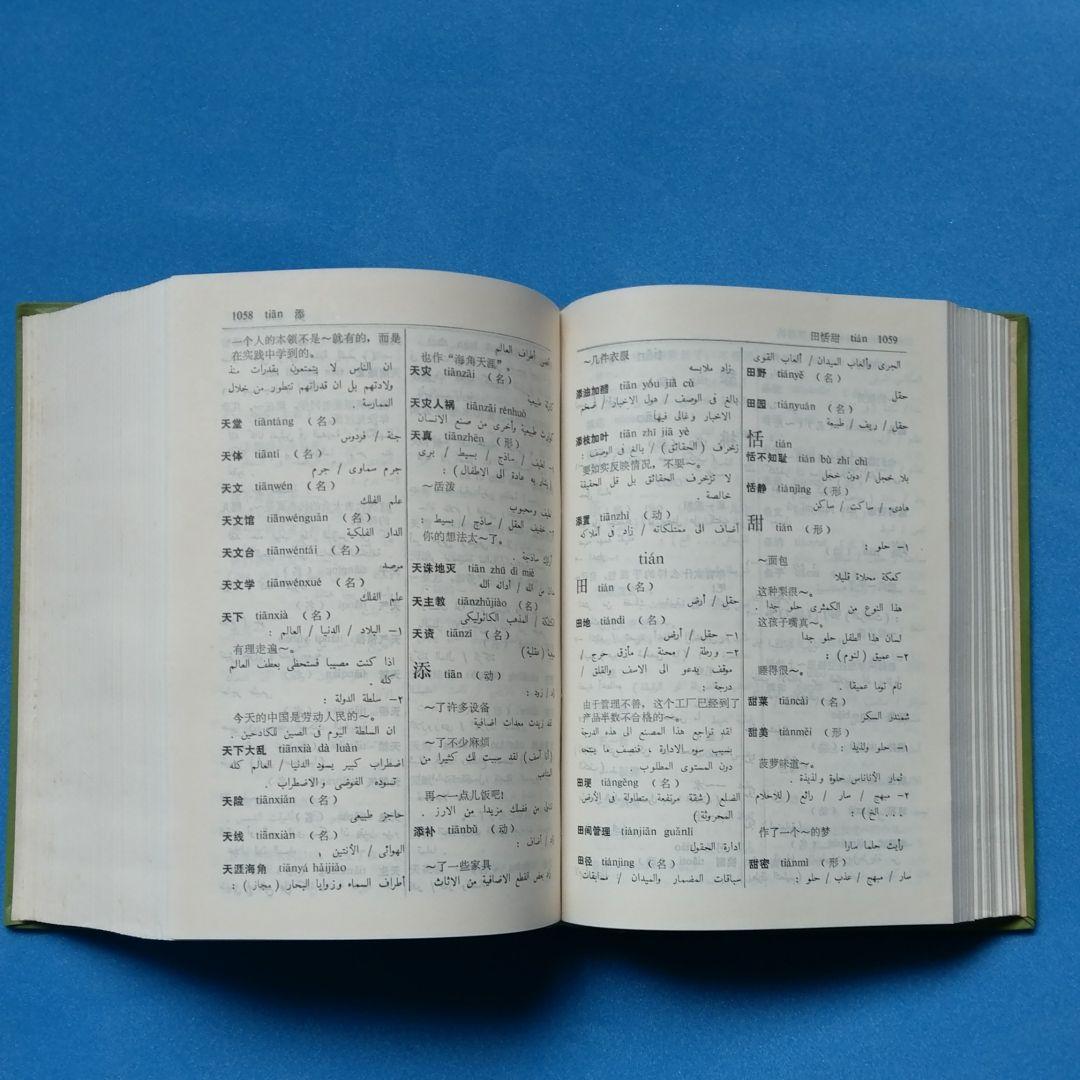 1058 tiān 添
一个人的本领不是～就有的，而是
在实践中学到的。
ان الناس لا يتمتعون بقدرات منذ
ولادتهم بل ان قدراتهم تتطور من خلال
الممارسة .
天堂 tiāntáng （名）
جنة / فردوس
天体 tiāntǐ （名）
جرم سماوى / جرم
天文 tiānwén （名）
علم الفلك
天文馆 tiānwénguǎn （名）
الدار الفلكية
天文台 tiānwéntái （名）
مرصد
天文学 tiānwénxué （名）
علم الفلك
天下 tiānxià （名）
١— البلاد / الدنيا / العالم :
有理走遍～。
اذا كنت مصيبا فستحظى بعطف العالم
كله .
٢— سلطة الدولة :
今天的中国是劳动人民的～。
ان السلطة اليوم فى الصين للكادحين .
天下大乱 tiānxià dà luàn
اضطراب كبير يسود الدنيا / العالم كله
تسوده الفوضى والاضطراب .
天险 tiānxiǎn （名）
حاجز طبيعى
天线 tiānxiàn （名）
الهوائى / الأنتين
天涯海角 tiānyá hǎijiǎo
أطراف السماء وزوايا البحار ( مجاز ) :
أطراف العالم
也作“海角天涯”。
天灾 tiānzāi （名）
طبيعية
天灾人祸 tiānzāi rénhuò
طبيعية وأخرى من صنع الانسان
天真 tiānzhēn （形）
لطيف / ساذج / بسيط / برئ
به عادة الى الاطفال ) :
～活泼
ومحبوب
٢— خفيف العقل / ساذج / بسيط :
你的想法太～了。
ساذجة .
天诛地灭 tiān zhū dì miè
من الله / أدانه الله
天主教 tiānzhǔjiào （名）
/ المذهب الكاثوليكى
天资 tiānzī （名）
( عقلية )
添 tiān （动）
/ زود :
～了许多设备
زيدت معدات اضافية
～了不少麻烦
( أنا آسف ) لقد سببت لك كثيرا من
再～一点儿饭吧！
من فضلك مزيدا من الارز .
添补 tiānbǔ （动）
/ أضاف :
～了一些家具
بعض القطع الاضافية من الاثاث
田恬甜 tián 1059
～几件衣服
زاد ملابسه
添油加醋 tiān yóu jiā cù
بالغ فى الوصف / هول الاخبار / ضخم
الاخبار وغالى فيها
添枝加叶 tiān zhī jiā yè
زخرف ( الحقائق ) / بالغ فى الوصف :
要如实反映情况，不要～。
لا تزخرف الحقائق بل قل الحقيقة
خالصة .
添置 tiānzhì （动）
أضاف الى ممتلكاته / زاد فى أملاكه
tián
田 tián （名）
حقل / أرض
田地 tiándì （名）
١— حقل / أرض
٢— ورطة / محنة / مأزق حرج /
موقف يدعو الى الاسف والقلق /
درجة :
由于管理不善，这个工厂已经到了
产品半数不合格的～。
لقد تراجع هذا المصنع الى هذه الدرجة
بسبب سوء الادارة ، فنصف ما ينتجه
دون المستوى المطلوب .
田埂 tiángěng （名）
الضلع ( شقة مرتفعة متطاولة فى الأرض
المحروثة )
田间管理 tiánjiān guǎnlǐ
ادارة الحقول
田径 tiánjìng （名）
سباقات المضمار والميدان / مسابقات
الجرى وألعاب الميدان / ألعاب القوى
田野 tiányě （名）
حقل
田园 tiányuán （名）
حقل / ريف / طبيعة
恬 tián
恬不知耻 tián bù zhī chǐ
بلا خجل / دون خجل
恬静 tiánjìng （形）
هادىء / ساكت / ساكن
甜 tián （形）
١— حلو :
～面包
كعكة محلاة قليلا
这种梨很～。
هذا النوع من الكمثرى حلو جدا .
这孩子嘴真～。
لسان هذا الطفل حلو جدا
٢— عميق ( لنوم ) :
睡得很～。
نام نوما عميقا .
甜菜 tiáncài （名）
شمندر السكر
甜美 tiánměi （形）
١— حلو ولذيذ :
菠萝味道～。
ثمار الأناناس حلوة ولذيذة .
٢— مبهج / سار / رائع ( للاحلام
... الخ ) :
作了一个～的梦
رأيت حلما سارا
甜密 tiánmì （形）
سار / مبهج / عذب / حلو :